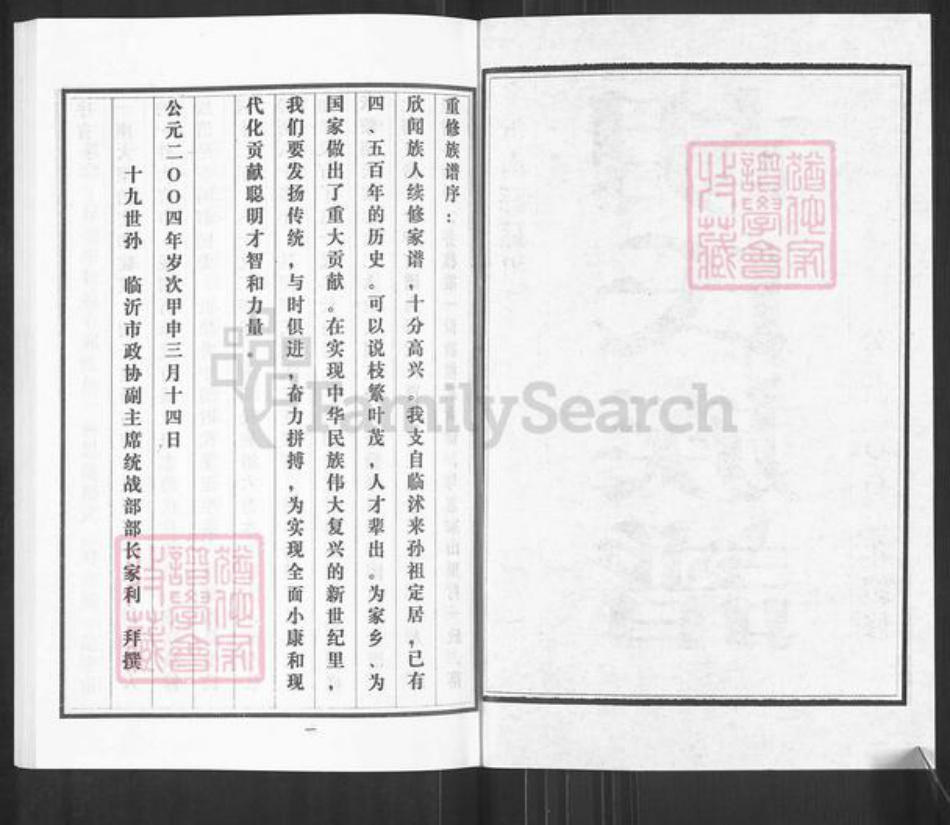 重修族谱序：
欣闻族人续修家谱，十分高兴。我支自临沭来孙祖定居，已有
四、五百年的历史。可以说枝繁叶茂，人才辈出。为家乡、为
国家做出了重大贡献。在实现中华民族伟大复兴的新世纪里，
我们要发扬传统，与时俱进，奋力拼搏，为实现全面小康和现
代化贡献聪明才智和力量。
公元二〇〇四年岁次甲申三月十四日
十九世孙 临沂市政协副主席统战部部长家利 拜撰
一
FamilySearch